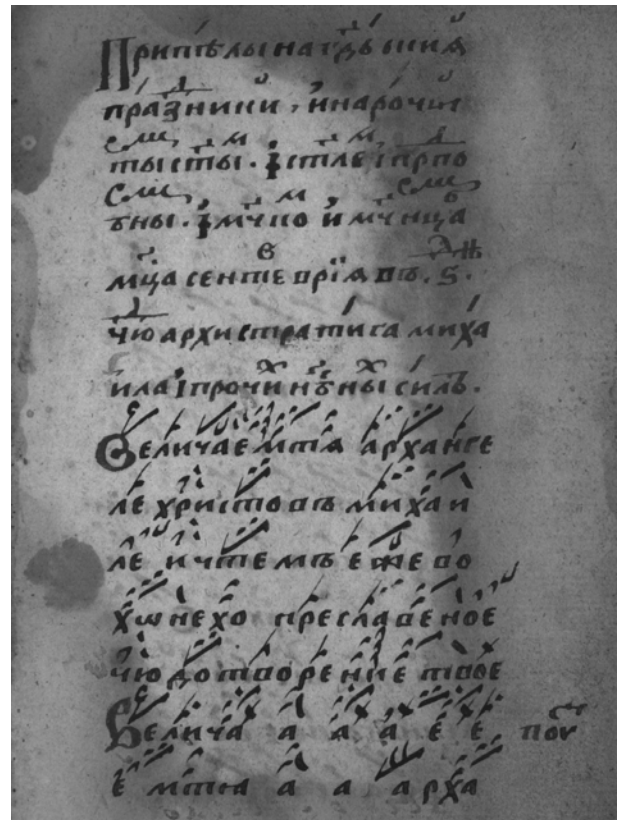 Припѣлы на гд҇ьскиѧ
праз҇дники, и нарочи
тыѧ ст҃ыⷨ. і ст҃леⷨ і прпо
бныⷨ. і мч҃коⷨ и мч҃нца
мц҃а сентевріѧ въ. ѕ.
чю҇до архистратига миха
ила і прочиⷯ нб҃ныⷯ силъ.
Величаемъ тѧ арханге
ле христовъ михаи
ле и чтемъ еже во
хѡнехо преславеное
чюдотворение твое
Велича а а а е е поⷹ
е мъ тѧ а а арха